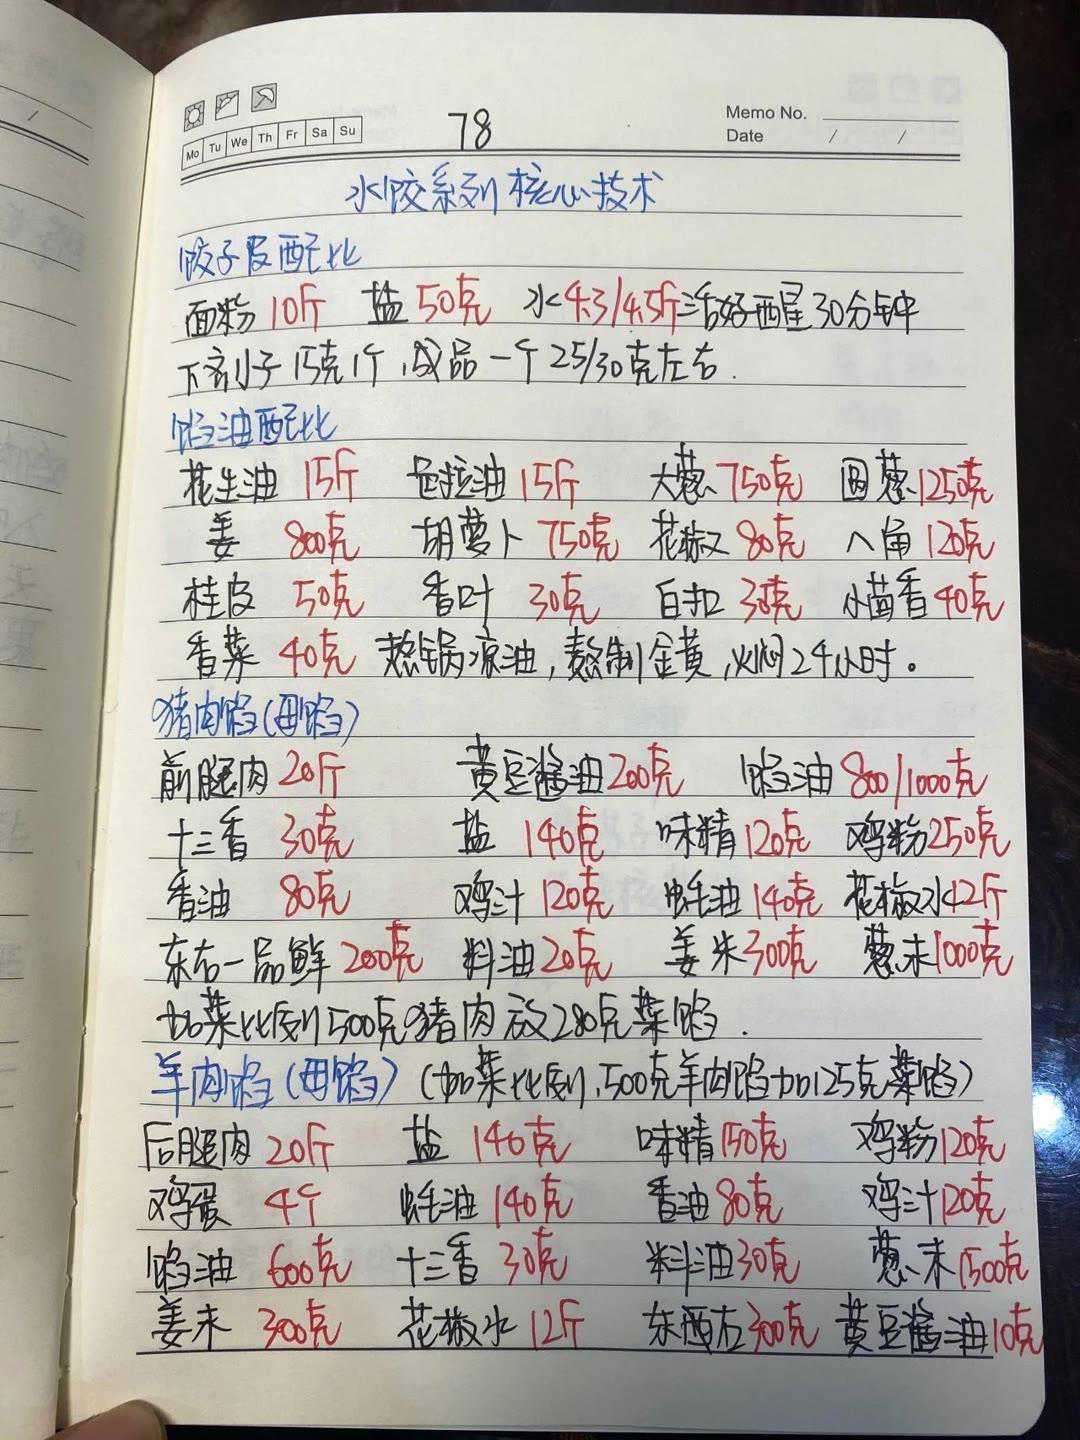 78
Memo No.
Mo Tu We Th Fr Sa Su
Date / /
水饺系列核心技术
饺子皮配比
面粉10斤 盐50克 水4.3/4.5斤活好醒30分钟
下剂子15克1个,成品一个25/30克左右.
馅油配比
花生油 15斤 色拉油15斤 大葱750克 圆葱1250克
姜 800克 胡萝卜750克 花椒80克 八角120克
桂皮 50克 香叶 30克 白扣 30克 小茴香40克
香菜 40克 热锅凉油,熬制金黄,火焖24小时。
猪肉馅(母馅)
前腿肉20斤 黄豆酱油200克 馅油800/1000克
十三香 30克 盐 140克 味精120克 鸡粉250克
香油 80克 鸡汁120克 蚝油140克 花椒水12斤
东古一品鲜200克 料油20克 姜末300克 葱末1000克
加菜比例500克猪肉放280克菜馅.
羊肉馅(母馅)(加菜比例,500克羊肉馅加125克菜馅)
后腿肉20斤 盐 140克 味精150克 鸡粉120克
鸡蛋 4个 蚝油140克 香油80克 鸡汁120克
馅油 600克 十三香 30克 料油30克 葱末1500克
姜末 300克 花椒水12斤 东西古300克 黄豆酱油10克